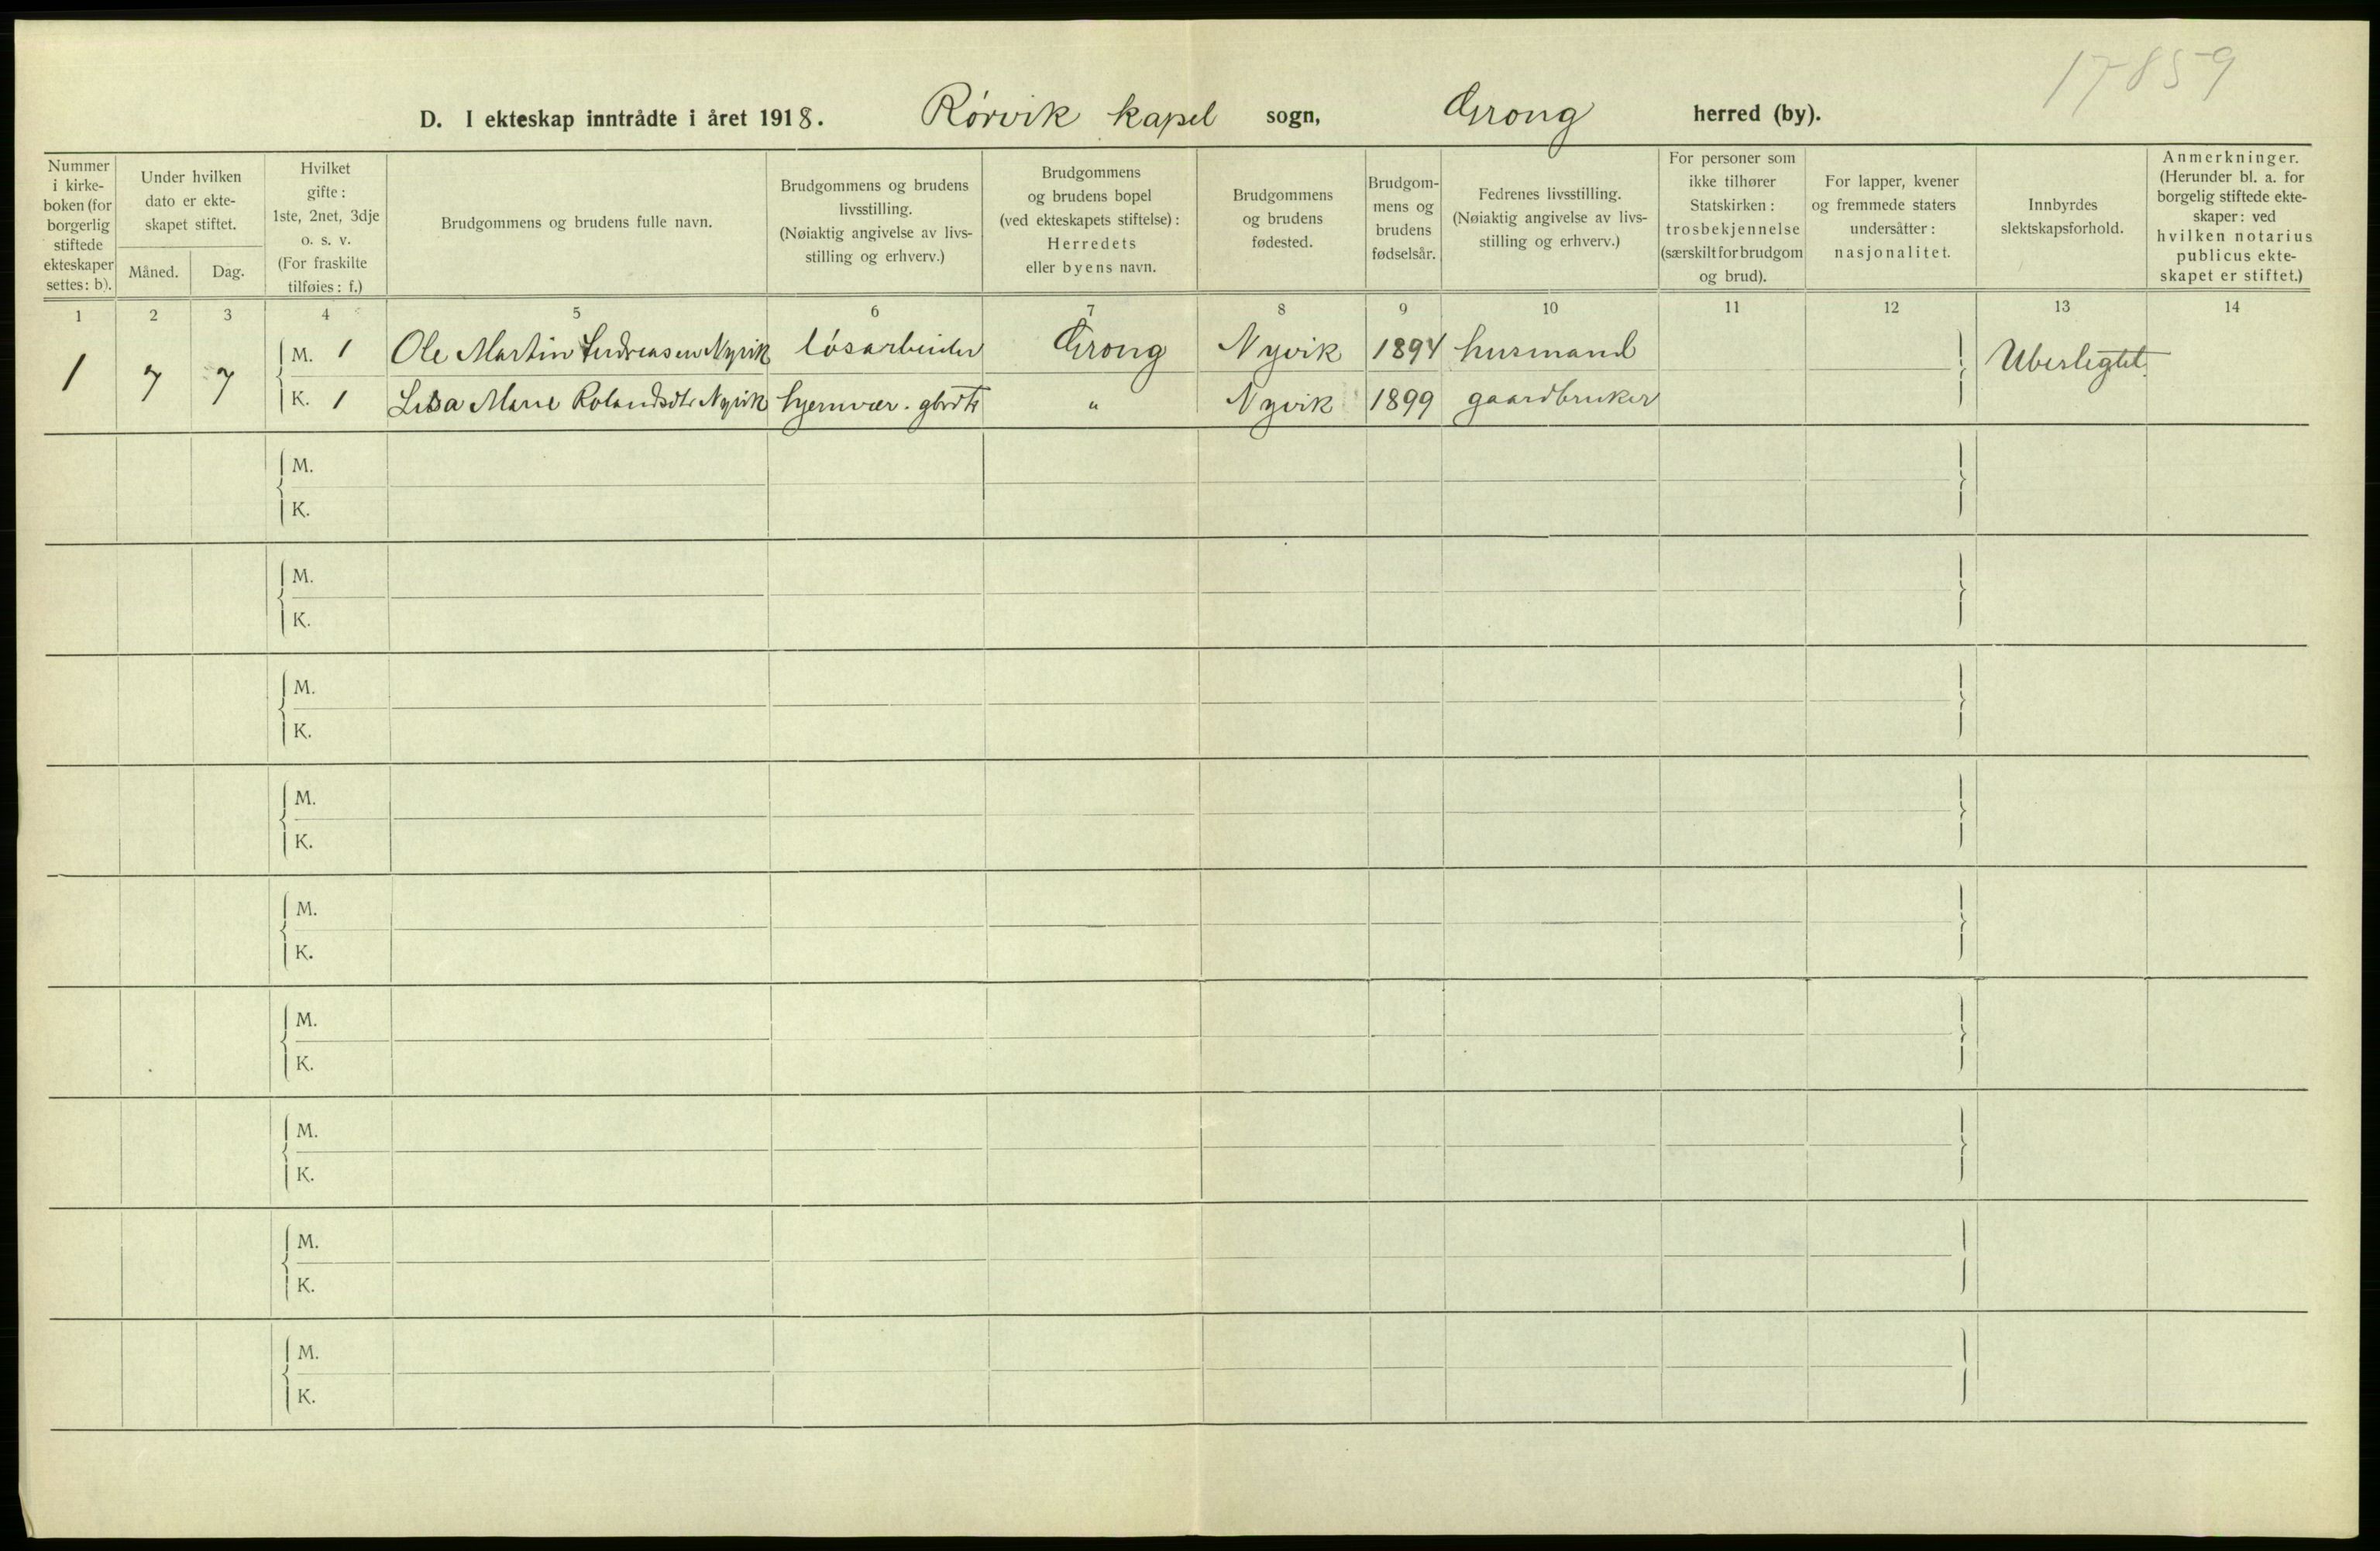 17859
D. I ekteskap inntrådte i året 1918. Rörvik kapel sogn, Grong herred (by).
Nummer i kirke- boken (for borgerlig stiftede ekteskaper settes: b).
Under hvilken dato er ekte- skapet stiftet.
Måned.
Dag.
Hvilket gifte: 1ste, 2net, 3dje o. s. v. (For fraskilte tilføies: f.)
Brudgommens og brudens fulle navn.
Brudgommens og brudens livsstilling. (Nøiaktig angivelse av livs- stilling og erhverv.)
Brudgommens og brudens bopel (ved ekteskapets stiftelse): Herredets eller byens navn.
Brudgommens og brudens fødested.
Brudgom- mens og brudens fødselsår.
Fedrenes livsstilling. (Nøiaktig angivelse av livs- stilling og erhverv.)
For personer som ikke tilhører Statskirken: trosbekjennelse (særskilt for brudgom og brud).
For lapper, kvener og fremmede staters undersåtter: nasjonalitet.
Innbyrdes slektskapsforhold.
Anmerkninger. (Herunder bl. a. for borgelig stiftede ekte- skaper: ved hvilken notarius publicus ekte- skapet er stiftet.)
1 2 3 4 5 6 7 8 9 10 11 12 13 14
1 7 7 M. 1 Ole Martin Andreasen Nyvik lösarbeider Grong Nyvik 1894 husmand Ubeslegtet.
K. 1 Lisa Marie Rolandsdtr Nyvik hjemvær. gbrdtr " Nyvik 1899 gaardbruker
M.
K.
M.
K.
M.
K.
M.
K.
M.
K.
M.
K.
M.
K.
M.
K.
M.
K.